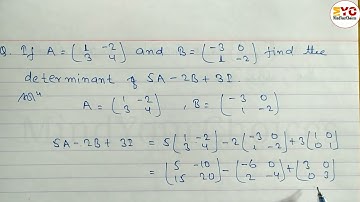 SYC
Q. If A = (1 -2 / 3 4) and B = (-3 0 / 1 -2) find the
determinant of 5A - 2B + 3I.
Solⁿ
A = (1 -2 / 3 4), B = (-3 0 / 1 -2)
5A - 2B + 3I = 5(1 -2 / 3 4) - 2(-3 0 / 1 -2) + 3(1 0 / 0 1)
= (5 -10 / 15 20) - (-6 0 / 2 -4) + (3 0 / 0 3)